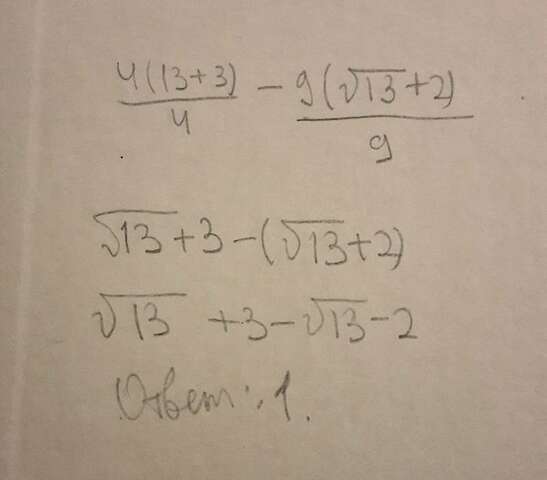 4(13+3)/4 - 9(√13+2)/9
√13+3-(√13+2)
√13 +3-√13-2
Ответ: 1.